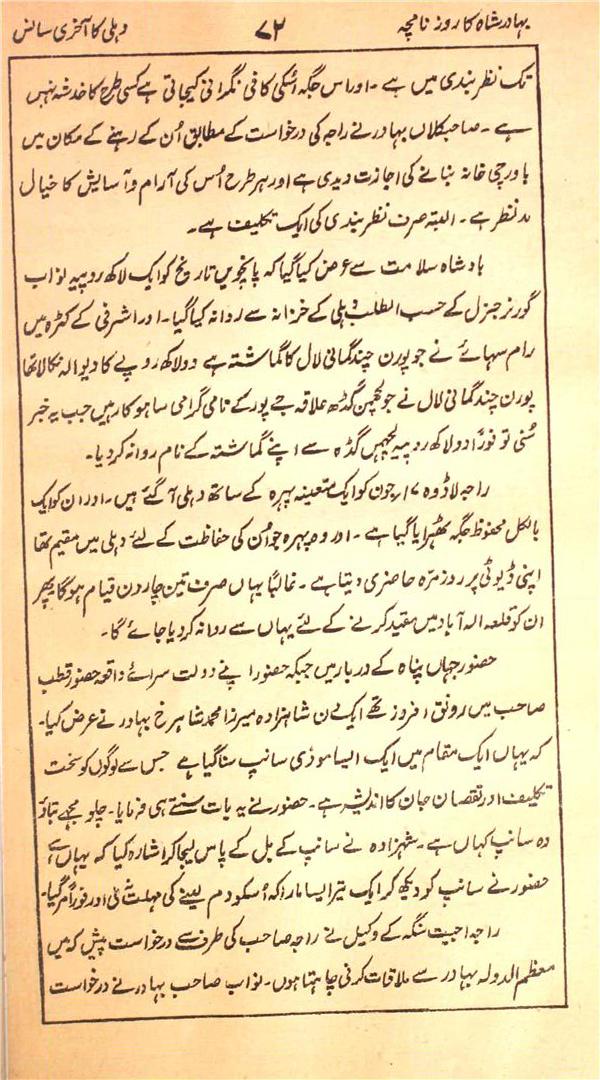 بہادر شاہ کا روزنامچہ ۷۲ دہلی کا آخری سانس
تک نظر بندی میں ہے ۔ اور اس جگہ اُسکی کافی نگرانی کیجاتی ہے کسی طرح کا خدشہ نہیں
ہے ۔ صاحبکلاں بہادر نے راجہ کی درخواست کے مطابق اُن کے رہنے کے مکان میں
باورچی خانہ بنانے کی اجازت دیدی ہے اور ہر طرح اُس کی آرام و آسایش کا خیال
مدنظر ہے ۔ البتہ صرف نظر بندی کی ایک تکلیف ہے ۔
بادشاہ سلامت سے عرض کیا گیا کہ پانچویں تاریخ کو ایک لاکھ روپیہ نواب
گورنر جنرل کے حسب الطلب دہلی کے خزانہ سے روانہ کیا گیا ۔ اور اشرفی کے کٹرہ میں
رام سہائے نے جو پورن چند گمانی لال کا گماشتہ ہے دو لاکھ روپے کا دیوالہ نکالا تھا
پورن چند گمانی لال نے جو لچھمن گڈھ علاقہ جے پور کے نامی گرامی ساہوکار ہیں جب یہ خبر
سُنی تو فوراً دو لاکھ روپیہ لچھمن گڈہ سے اپنے گماشتہ کے نام روانہ کر دیا ۔
راجہ لاڈوہ ۱۷؍ جون کو ایک متعینہ پہرہ کے ساتھ دہلی آگئے ہیں ۔ اور ان کو ایک
بالکل محفوظ جگہ ٹھہرایا گیا ہے ۔ اور وہ پہرہ جو اُن کی حفاظت کے لئے دہلی میں مقیم تھا
اپنی ڈیوٹی پر روز مرّہ حاضری دیتا ہے ۔ غالباً یہاں صرف تین چار دن قیام ہوگا پھر
ان کو قلعہ الہ آباد میں مقید کرنے کے لئے یہاں سے روانہ کر دیا جائے گا ۔
حضور جہاں پناہ کے دربار میں جبکہ حضور اپنے دولت سرائے واقعہ حضور قطب
صاحب میں رونق افروز تھے ایک دن شاہزادہ میرزا محمد شاہرخ بہادر نے عرض کیا ۔
کہ یہاں ایک مقام میں ایک ایسا موذی سانپ سنا گیا ہے جس سے لوگوں کو سخت
تکلیف اور نقصان جان کا اندیشہ ہے ۔ حضور نے یہ بات سنتے ہی فرمایا ۔ چلو مجھے بتاؤ
وہ سانپ کہاں ہے ۔ شہزادہ نے سانپ کے بل کے پاس لیجا کر اشارہ کیا کہ یہاں ہے
حضور نے سانپ کو دیکھ کر ایک تیر ایسا مارا کہ اُسکو دم لینے کی مہلت نہ ملی اور فوراً مر گیا ۔
راجہ اجیت سنگہ کے وکیل نے راجہ صاحب کی طرف سے درخواست پیش کہ میں
معظم الدولہ بہادر سے ملاقات کرنی چاہتا ہوں ۔ نواب صاحب بہادر نے درخواست